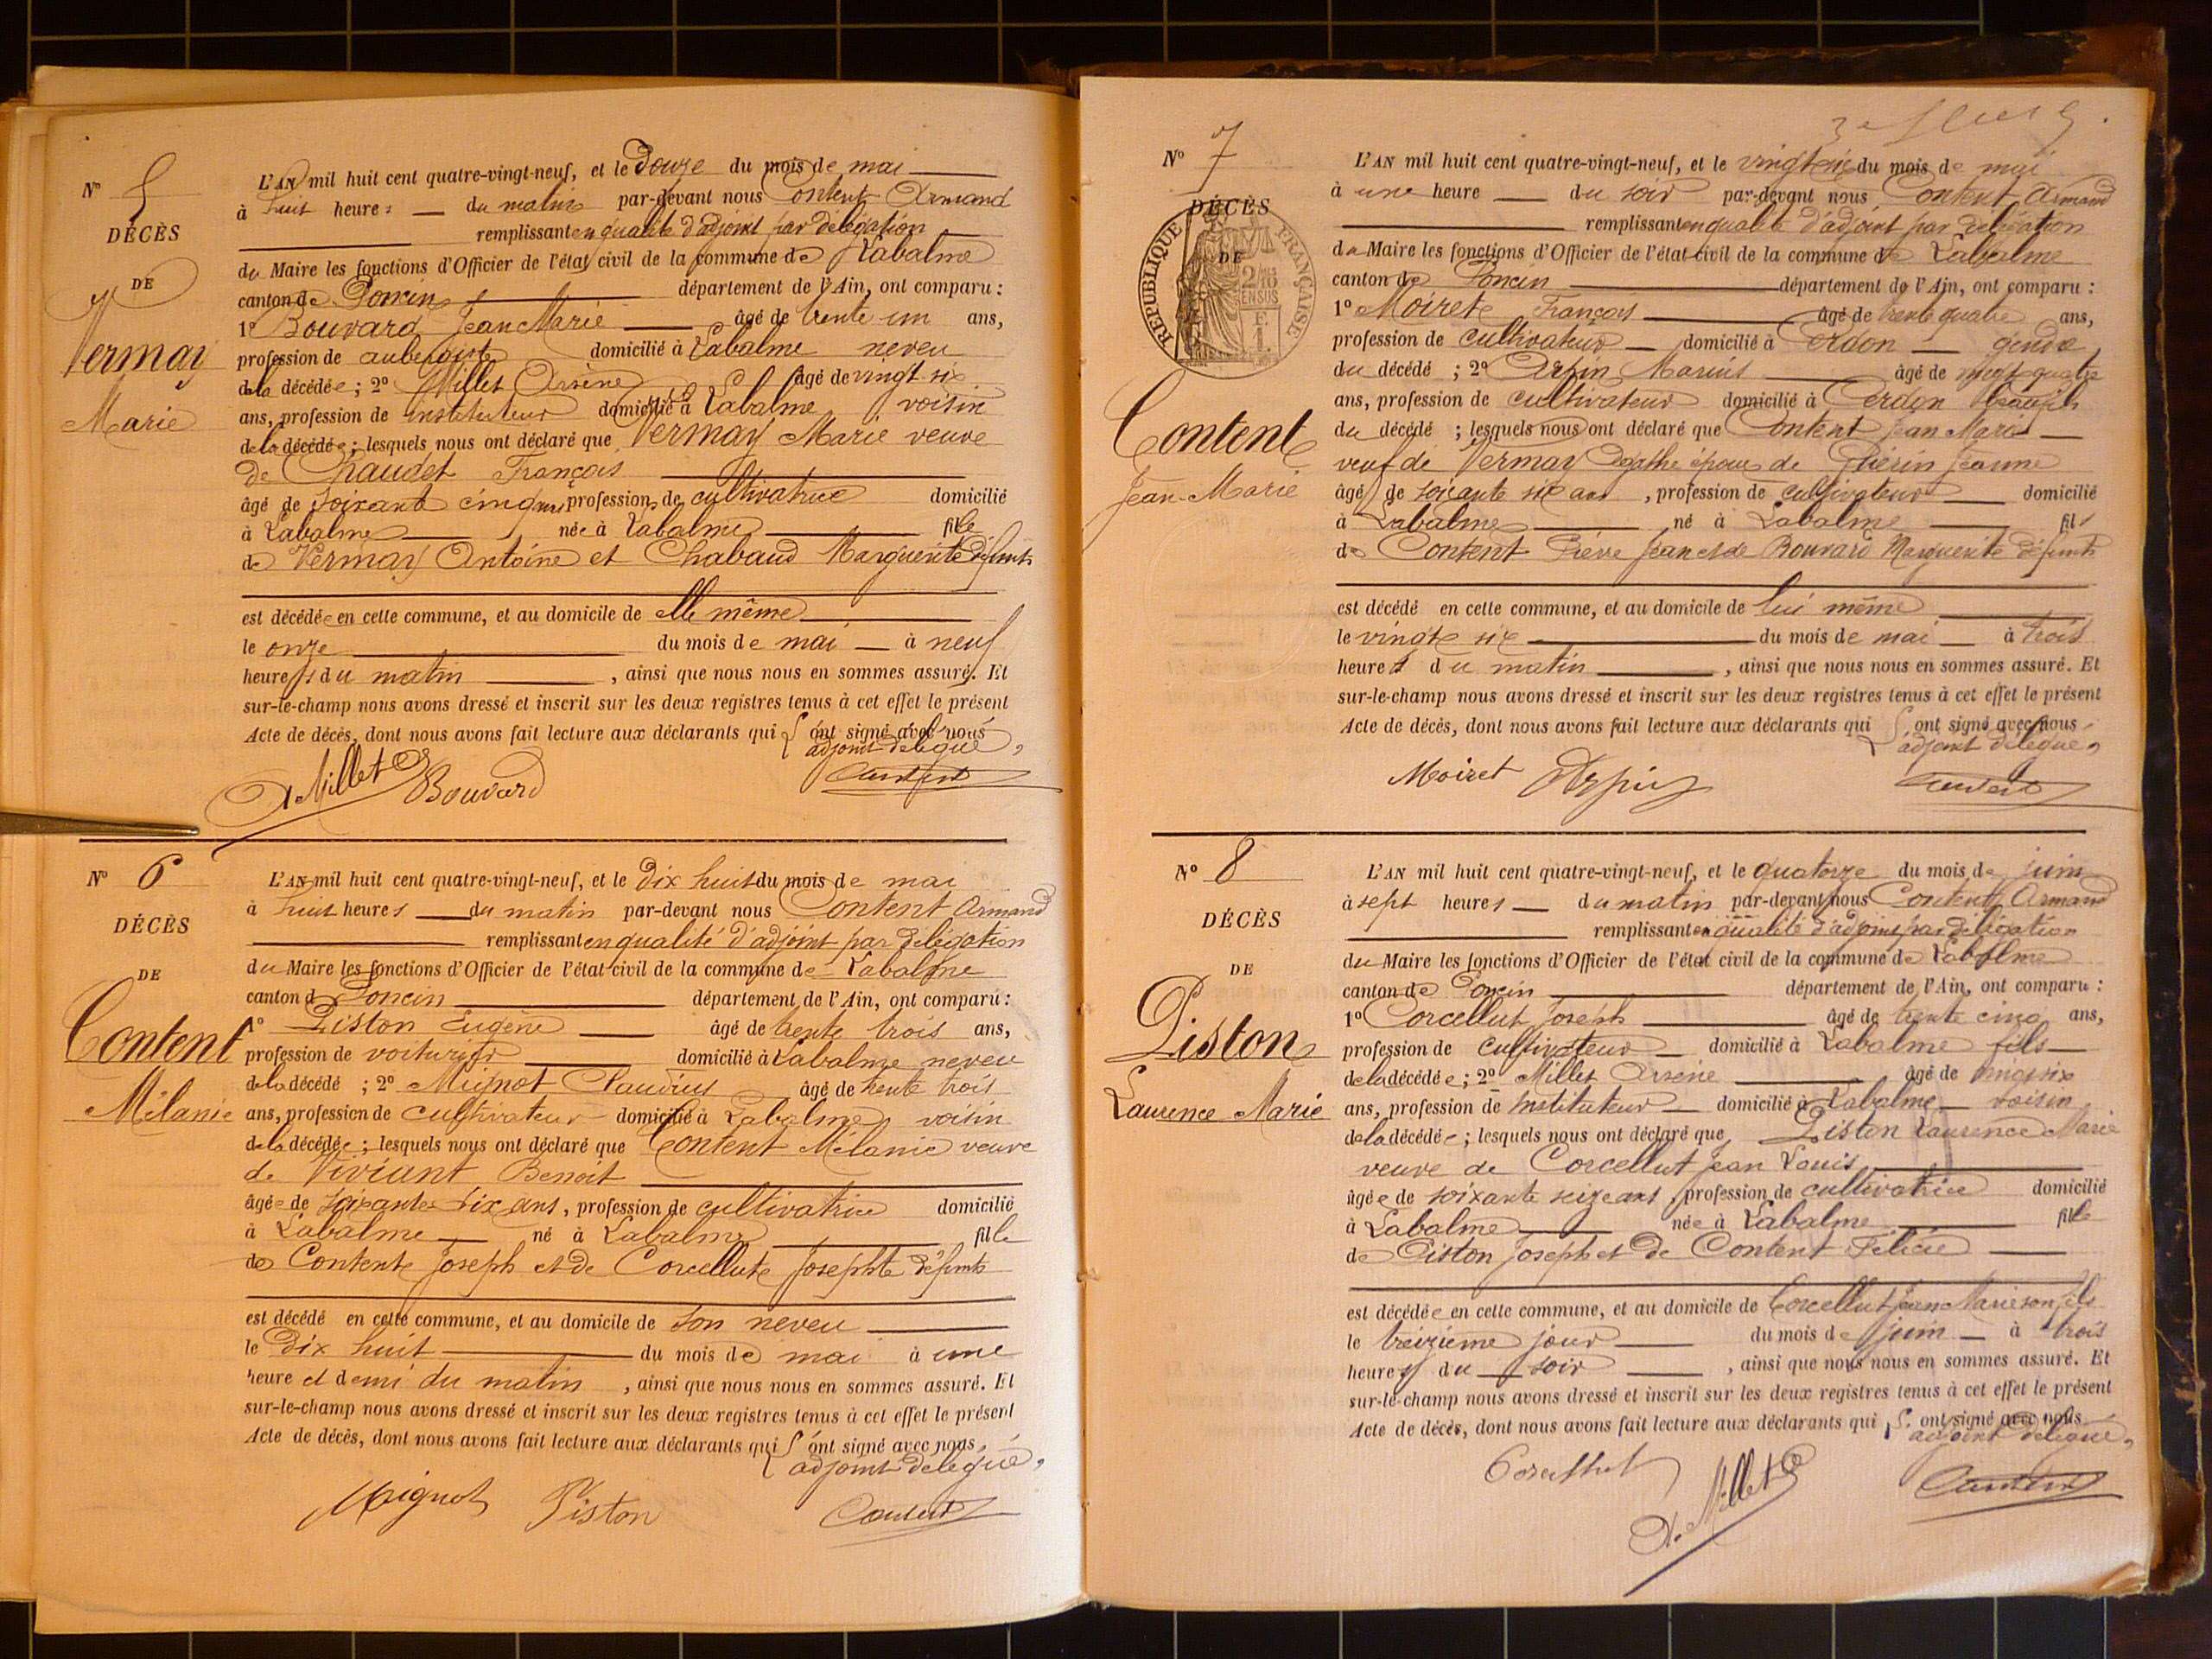 N° 5
DÉCÈS
DE
Vermay
Marie
L'AN mil huit cent quatre-vingt-neuf, et le Douze du mois de mai
à huit heures du matin par-devant nous Content Armand
remplissant en qualité d'adjoint par délégation
du Maire les fonctions d'Officier de l'état civil de la commune de Labalme
canton de Poncin département de l'Ain, ont comparu :
1° Bouvard Jean Marie âgé de trente un ans,
profession de aubergiste domicilié à Labalme neveu
de la décédée ; 2° Millet Arsène âgé de vingt six
ans, profession de instituteur domicilié à Labalme voisin
de la décédée ; lesquels nous ont déclaré que Vermay Marie veuve
de Chaudet François
âgé de soixante cinq ans profession de cultivatrice domicilié
à Labalme née à Labalme fille
de Vermay Antoine et Chabaud Marguerite défunts
est décédée en cette commune, et au domicile de elle même
le onze du mois de mai à neuf
heures du matin , ainsi que nous nous en sommes assuré. Et
sur-le-champ nous avons dressé et inscrit sur les deux registres tenus à cet effet le présent
Acte de décès, dont nous avons fait lecture aux déclarants qui ont signé avec nous
adjoint délégué,
A. Millet Bouvard Content
N° 6
DÉCÈS
DE
Content
Mélanie
L'AN mil huit cent quatre-vingt-neuf, et le Dix huit du mois de mai
à huit heures du matin par-devant nous Content Armand
remplissant en qualité d'adjoint par délégation
du Maire les fonctions d'Officier de l'état civil de la commune de Labalme
canton d Poncin département de l'Ain, ont comparu :
1° Piston Eugène âgé de trente trois ans,
profession de voiturier domicilié à Labalme neveu
de la décédé ; 2° Mignot Claudius âgé de trente trois
ans, profession de cultivateur domicilié à Labalme voisin
de la décédée ; lesquels nous ont déclaré que Content Mélanie veuve
de Viviant Benoit
âgée de soixante dix ans, profession de cultivatrice domicilié
à Labalme né à Labalme fille
de Content Joseph et de Corcellut Josephte défunts
est décédé en cette commune, et au domicile de son neveu
le Dix huit du mois de mai à une
heure et demi du matin , ainsi que nous nous en sommes assuré. Et
sur-le-champ nous avons dressé et inscrit sur les deux registres tenus à cet effet le présent
Acte de décès, dont nous avons fait lecture aux déclarants qui ont signé avec nous,
adjoint délégué,
Mignot Piston Content
N° 7
DÉCÈS
DE
RÉPUBLIQUE FRANÇAISE
Content
Jean-Marie
L'AN mil huit cent quatre-vingt-neuf, et le vingt six du mois de mai
à une heure du soir par-devant nous Content Armand
remplissant en qualité d'adjoint par délégation
du Maire les fonctions d'Officier de l'état civil de la commune de Labalme
canton de Poncin département de l'Ain, ont comparu :
1° Moiret François âgé de trente quatre ans,
profession de cultivateur domicilié à Cerdon gendre
du décédé ; 2° Arpin Marius âgé de vingt quatre
ans, profession de cultivateur domicilié à Cerdon beaufils
du décédé ; lesquels nous ont déclaré que Content Jean Marie
veuf de Vermay Agathe époux de Guérin Jeanne
âgé de soixante six ans , profession de cultivateur domicilié
à Labalme né à Labalme fils
de Content Pierre Jean et de Bouvard Marguerite défunts
est décédé en cette commune, et au domicile de lui même
le vingt six du mois de mai à trois
heures du matin , ainsi que nous nous en sommes assuré. Et
sur-le-champ nous avons dressé et inscrit sur les deux registres tenus à cet effet le présent
Acte de décès, dont nous avons fait lecture aux déclarants qui ont signé avec nous
adjoint délégué,
Moiret Arpin Content
N° 8
DÉCÈS
DE
Piston
Laurence Marie
L'AN mil huit cent quatre-vingt-neuf, et le quatorze du mois de juin
à sept heures du matin par-devant nous Content Armand
remplissant en qualité d'adjoint par délégation
du Maire les fonctions d'Officier de l'état civil de la commune de Labalme
canton de Poncin département de l'Ain, ont comparu :
1° Corcellut Joseph âgé de trente cinq ans,
profession de cultivateur domicilié à Labalme fils
de la décédée ; 2° Millet Arsène âgé de vingt six
ans, profession de instituteur domicilié à Labalme voisin
de la décédée ; lesquels nous ont déclaré que Piston Laurence Marie
veuve de Corcellut Jean Louis
âgée de soixante seize ans profession de cultivatrice domicilié
à Labalme née à Labalme fille
de Piston Joseph et de Content Félicie
est décédée en cette commune, et au domicile de Corcellut Jean Marie son fils
le treizième jour du mois de juin à trois
heures du soir , ainsi que nous nous en sommes assuré. Et
sur-le-champ nous avons dressé et inscrit sur les deux registres tenus à cet effet le présent
Acte de décès, dont nous avons fait lecture aux déclarants qui ont signé avec nous
adjoint délégué,
Corcellut A. Millet Content